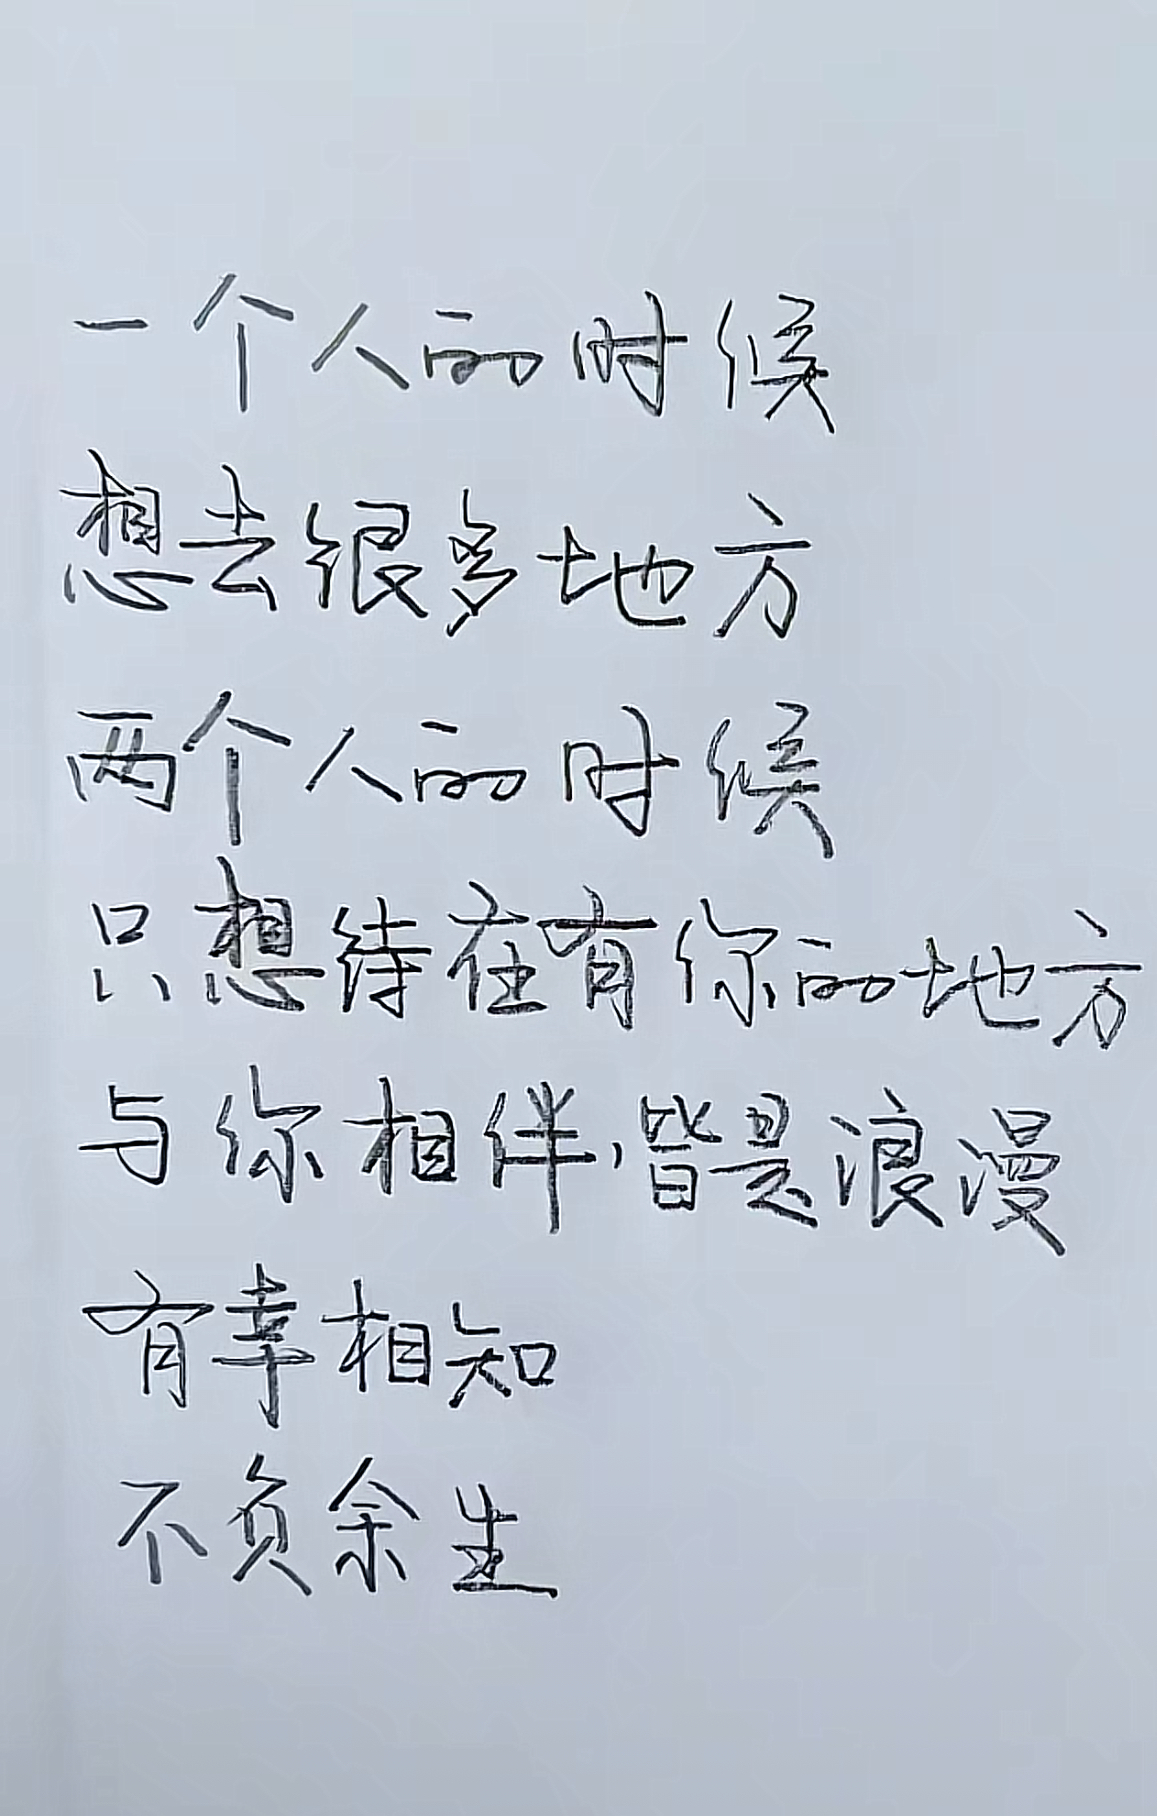 一个人的时候
想去很多地方
两个人的时候
只想待在有你的地方
与你相伴,皆是浪漫
有幸相知
不负余生